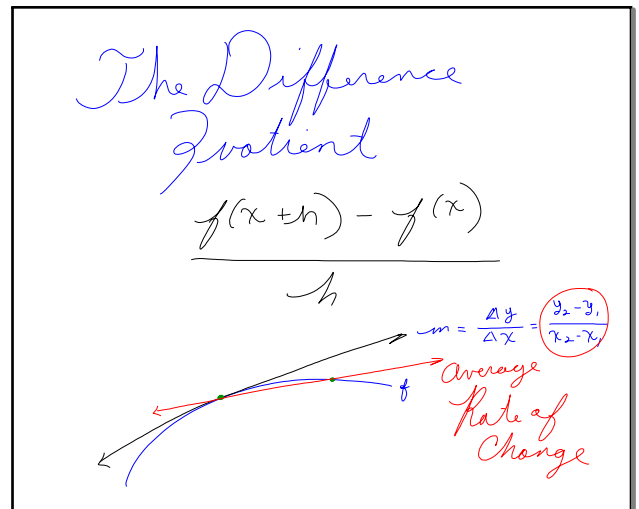 The Difference
Quotient
f(x+h) - f(x)
h
m = Δy/Δx = y₂-y₁/x₂-x₁
f
Average
Rate of
Change